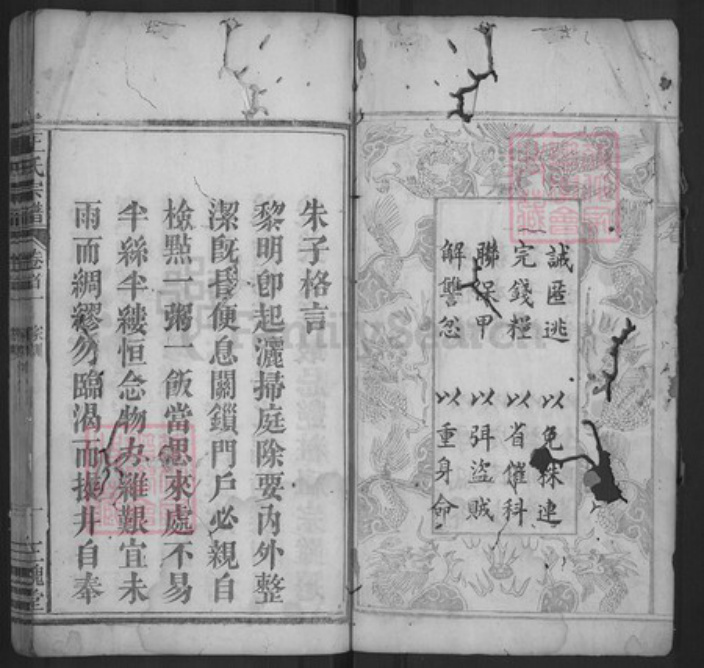 誡匿逃 以免株連
完錢糧 以省催科
聯保甲 以弭盜賊
解讐忿 以重身命
朱子格言
黎明卽起灑掃庭除要內外整
潔旣昏便息關鎖門戶必親自
檢點一粥一飯當思來處不易
半絲半縷恒念物力維艱宜未
雨而綢繆勿臨渴而掘井自奉
王氏宗譜
卷首一
宗訓
三槐堂
FamilySearch